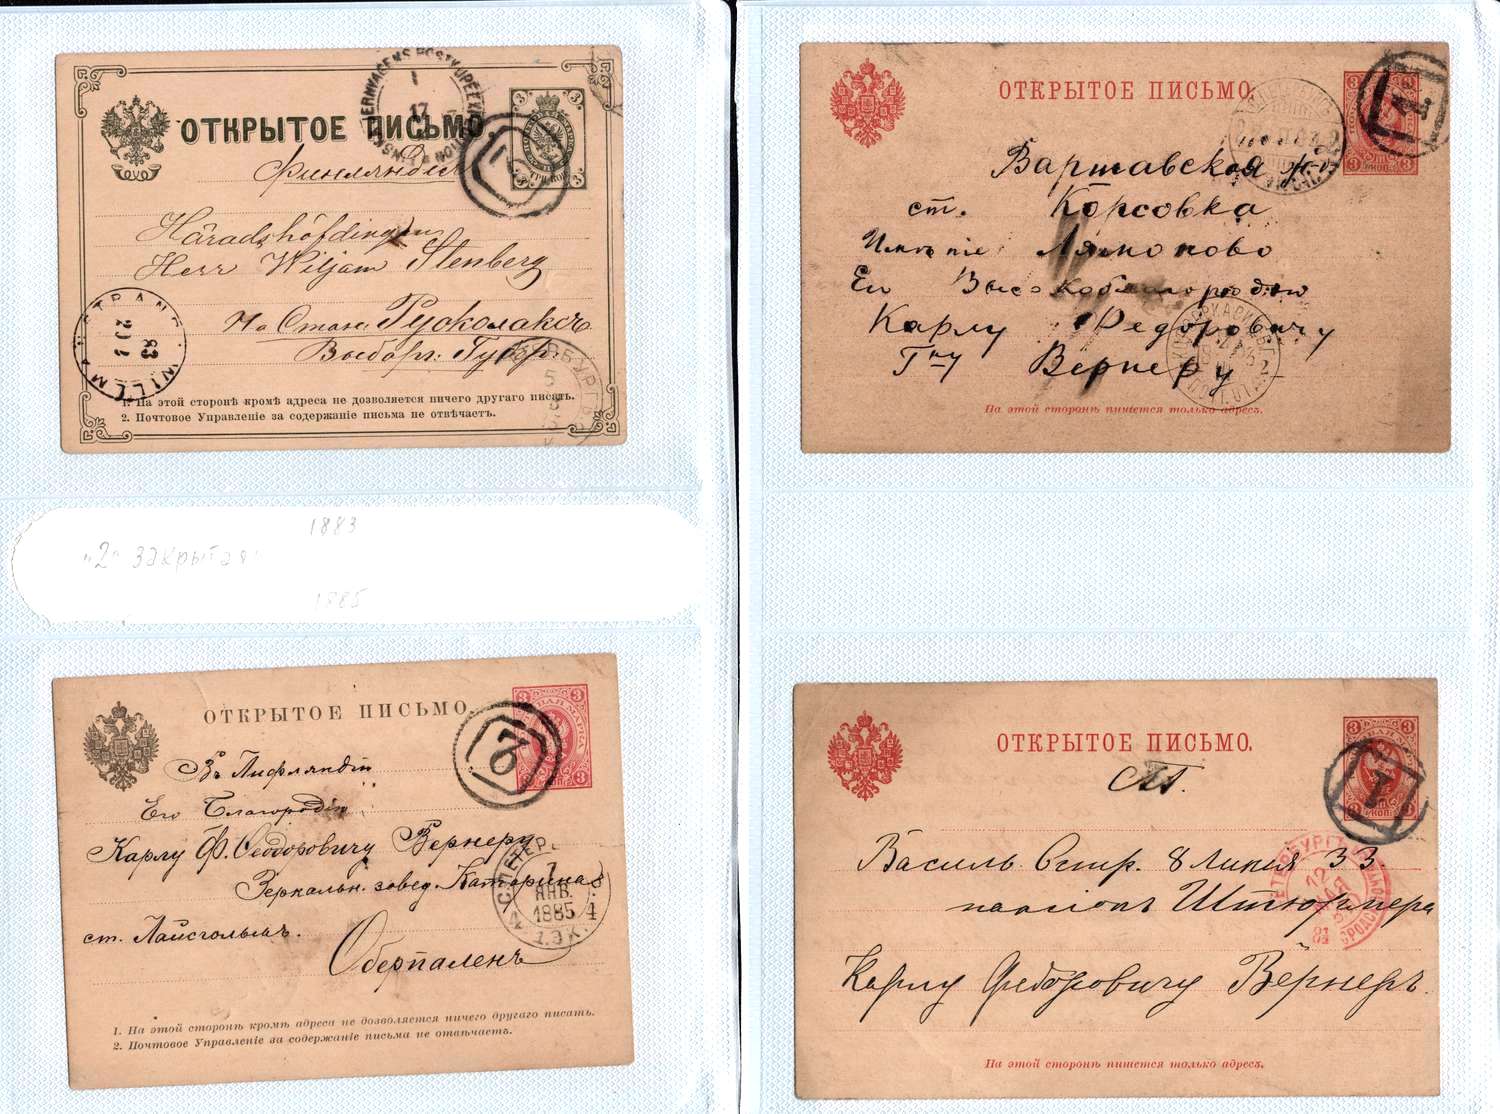 ОТКРЫТОЕ ПИСЬМО.
Финляндія
Häradshöfdingen
Herr Wiljam Stenberg
На Стан. Гусколаксъ
Выборг. Губ.
STRAND WILLMA
1. На этой сторонѣ кромѣ адреса не дозволяется ничего другаго писать.
2. Почтовое Управленіе за содержаніе письма не отвѣчаетъ.
1883
"2" закрытая
1885
ОТКРЫТОЕ ПИСЬМО.
2
Въ Лифляндіи
Его Благородію
Карлу Ф. Ѳеодоровичу Вернеру
Зеркальн. завед. Катарина
ст. Лайсгольмъ.
Оберпаленъ
7
ЯНВ.
1885
1. На этой сторонѣ кромѣ адреса не дозволяется ничего другаго писать.
2. Почтовое Управленіе за содержаніе письма не отвѣчаетъ.
ОТКРЫТОЕ ПИСЬМО.
1
Варшавской ж-д
ст. Корсовка
Имѣніе Лямоново
Его Высокоблагородію
Карлу Федоровичу
Г-ну Вернеру
На этой сторонѣ пишется только адресъ.
ОТКРЫТОЕ ПИСЬМО.
1
Василь Остр. 8 Линія 33
пансіонъ Штюрмера
Карлу Федоровичу Вернеръ.
На этой сторонѣ пишется только адресъ.